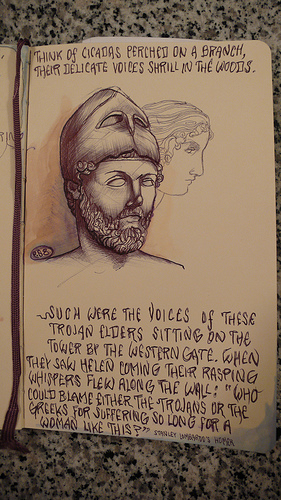 THINK OF CICADAS PERCHED ON A BRANCH,
THEIR DELICATE VOICES SHRILL IN THE WOODS.
~SUCH WERE THE VOICES OF THESE
TROJAN ELDERS SITTING ON THE
TOWER BY THE WESTERN GATE. WHEN
THEY SAW HELEN COMING THEIR RASPING
WHISPERS FLEW ALONG THE WALL: "WHO
COULD BLAME EITHER THE TROJANS OR THE
GREEKS FOR SUFFERING SO LONG FOR A
WOMAN LIKE THIS?"
STANLEY LOMBARDO'S HOMER